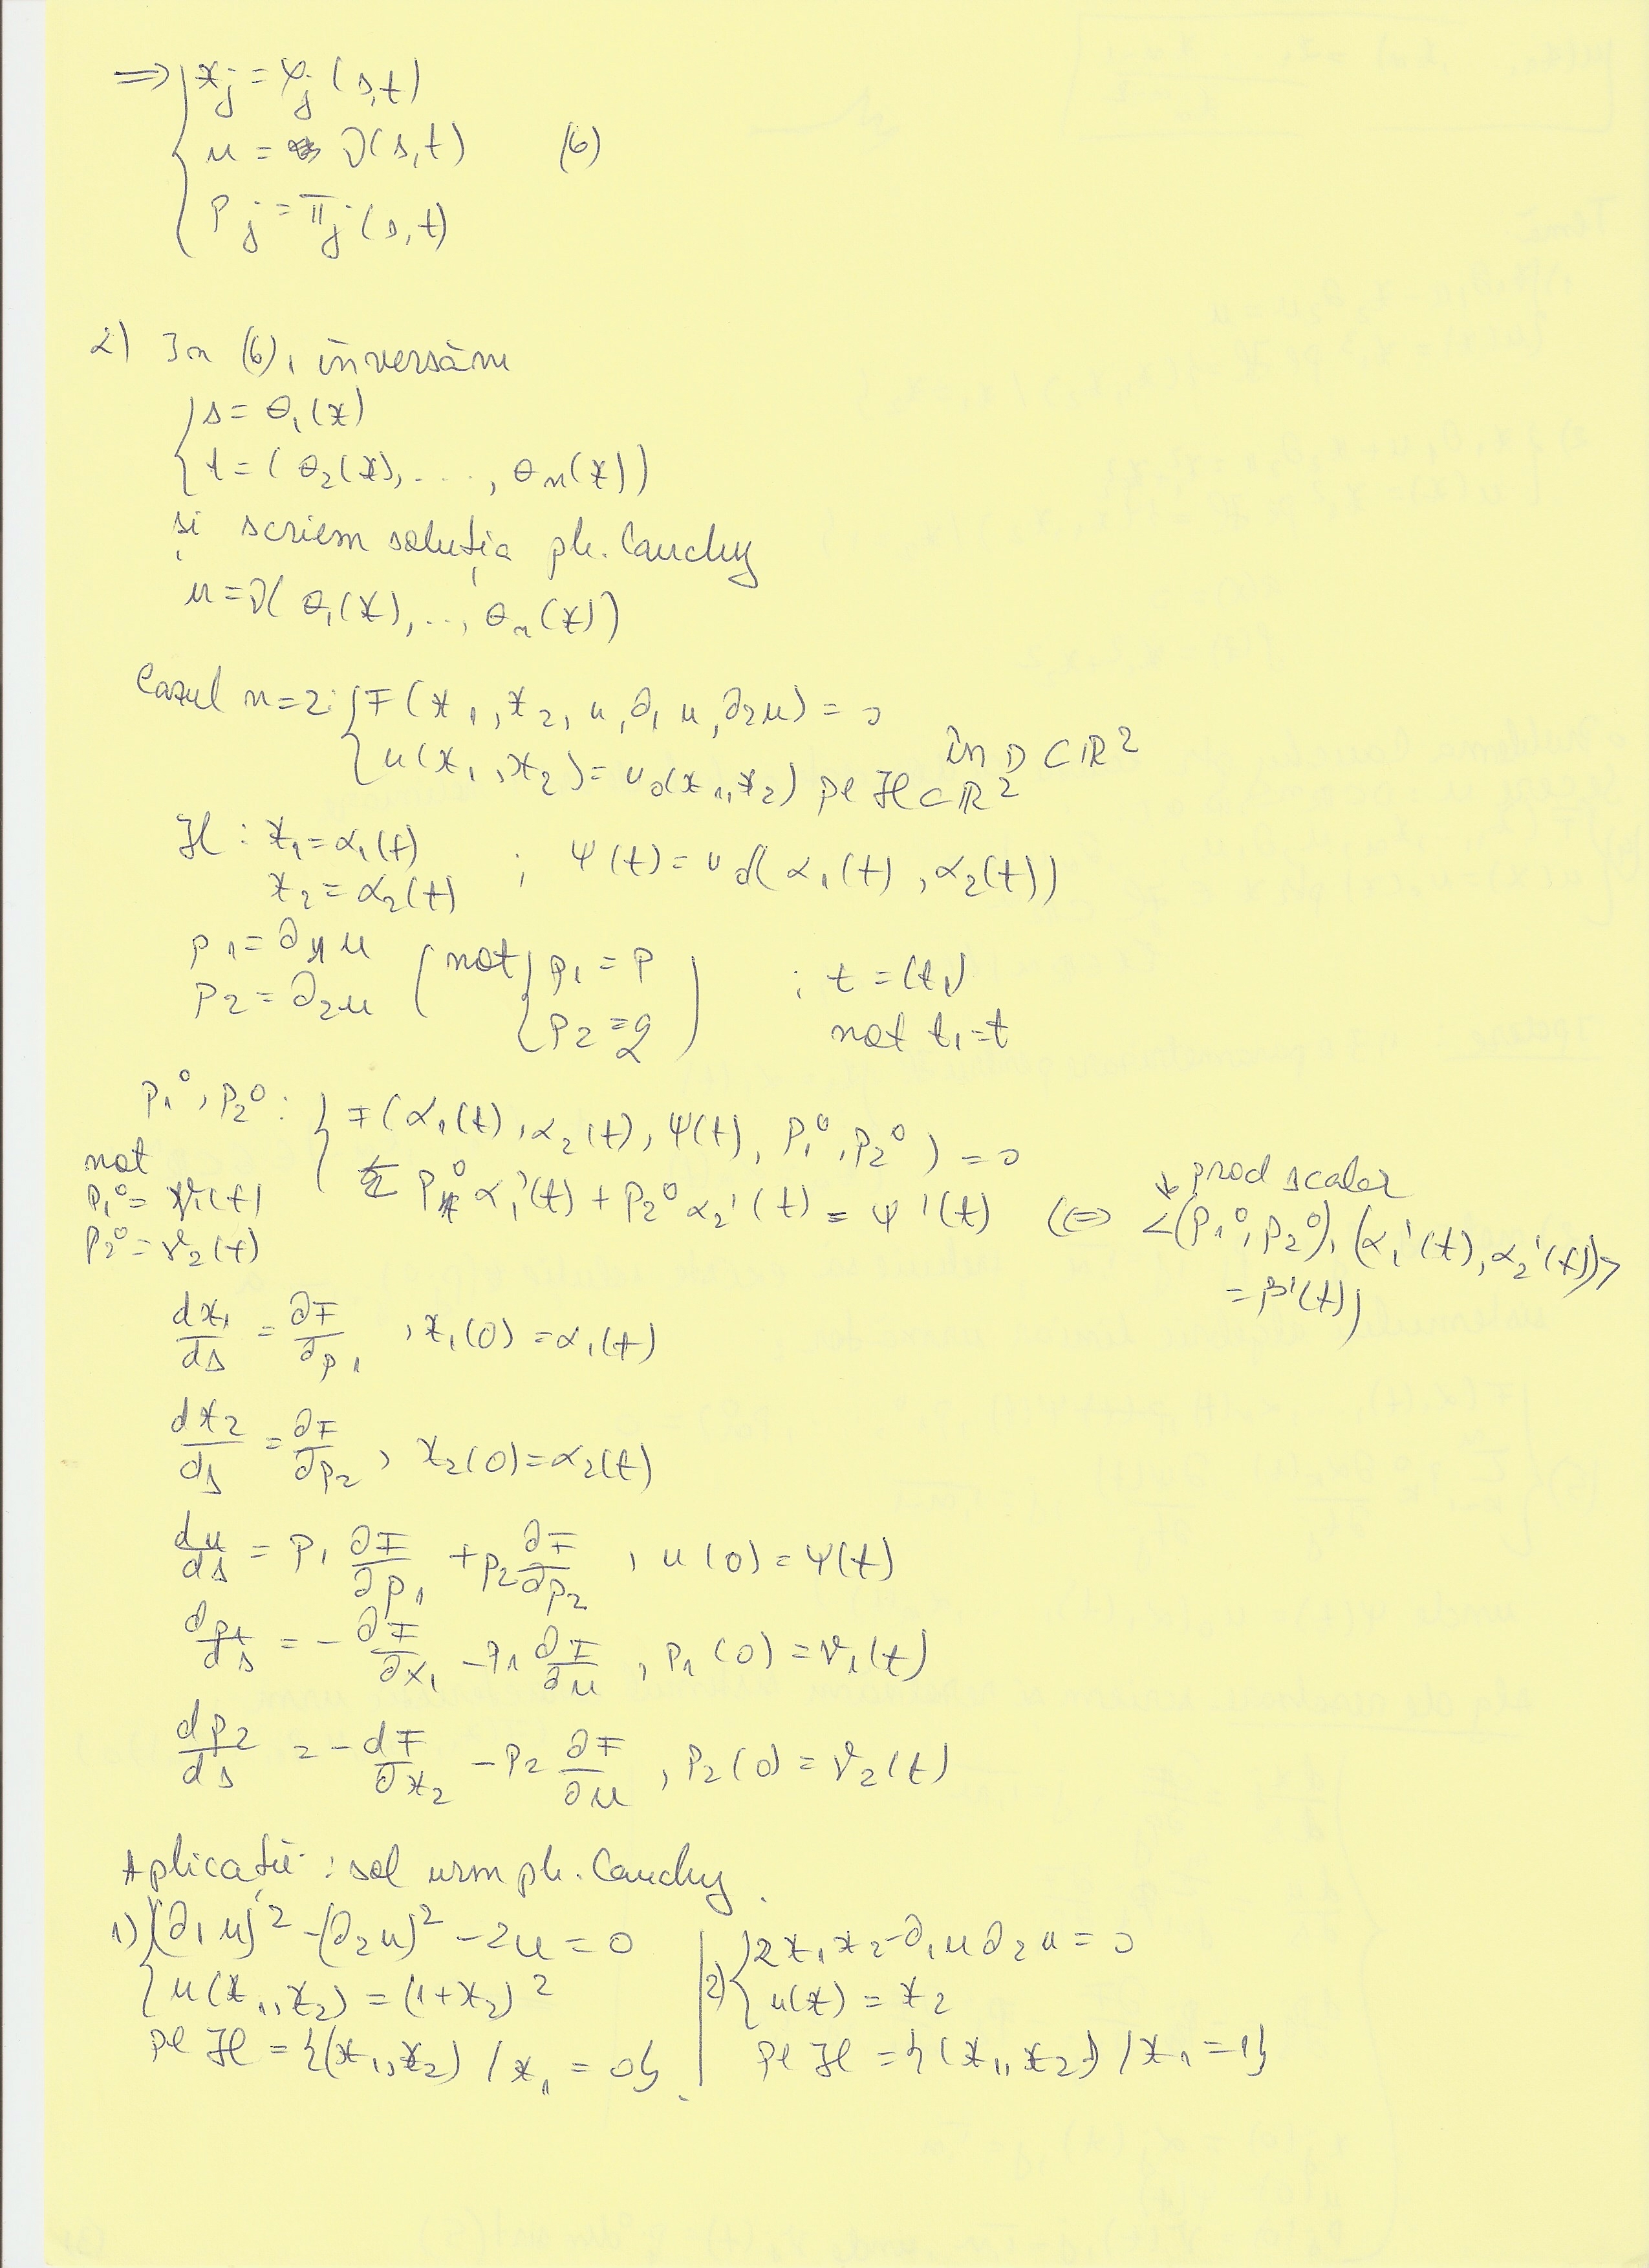 ⇒ { x_j = φ_j (s,t)
u = ϑ(s,t) (6)
p_j = π_j (s,t)
2) În (6), inversăm
{ s = θ_1(x)
t = (θ_2(x), ..., θ_n(x))
și scriem soluția pb. Cauchy
u = ϑ(θ_1(x), .., θ_n(x))
Cazul n=2: { F(x_1, x_2, u, ∂_1 u, ∂_2 u) = 0
în D ⊂ ℝ^2
u(x_1, x_2) = u_0(x_1, x_2) pe ℋ ⊂ ℝ^2
ℋ : x_1 = α_1(t) ; ψ(t) = u_0(α_1(t), α_2(t))
x_2 = α_2(t)
p_1 = ∂_1 u (not { p_1 = p ; t = (t_1)
p_2 = ∂_2 u p_2 = q ) not t_1 = t
p_1^0, p_2^0 : { F(α_1(t), α_2(t), ψ(t), p_1^0, p_2^0) = 0
not
p_1^0 α_1'(t) + p_2^0 α_2'(t) = ψ'(t) (⇔ <(p_1^0, p_2^0), (α_1'(t), α_2'(t))>
↓ prod scalar
= β'(t))
p_1^0 = γ_1(t)
p_2^0 = γ_2(t)
dx_1/ds = ∂F/∂p_1 , x_1(0) = α_1(t)
dx_2/ds = ∂F/∂p_2 , x_2(0) = α_2(t)
du/ds = p_1 ∂F/∂p_1 + p_2 ∂F/∂p_2 , u(0) = ψ(t)
dp_1/ds = - ∂F/∂x_1 - p_1 ∂F/∂u , p_1(0) = γ_1(t)
dp_2/ds = - dF/∂x_2 - p_2 ∂F/∂u , p_2(0) = γ_2(t)
Aplicații : sol urm pb. Cauchy.
1) { (∂_1 u)^2 - (∂_2 u)^2 - 2u = 0
u(x_1, x_2) = (1+x_2)^2
pe ℋ = {(x_1, x_2) / x_1 = 0}.
2) { 2x_1 x_2 - ∂_1 u ∂_2 u = 0
u(x) = x_2
pe ℋ = {(x_1, x_2) / x_1 = 1}